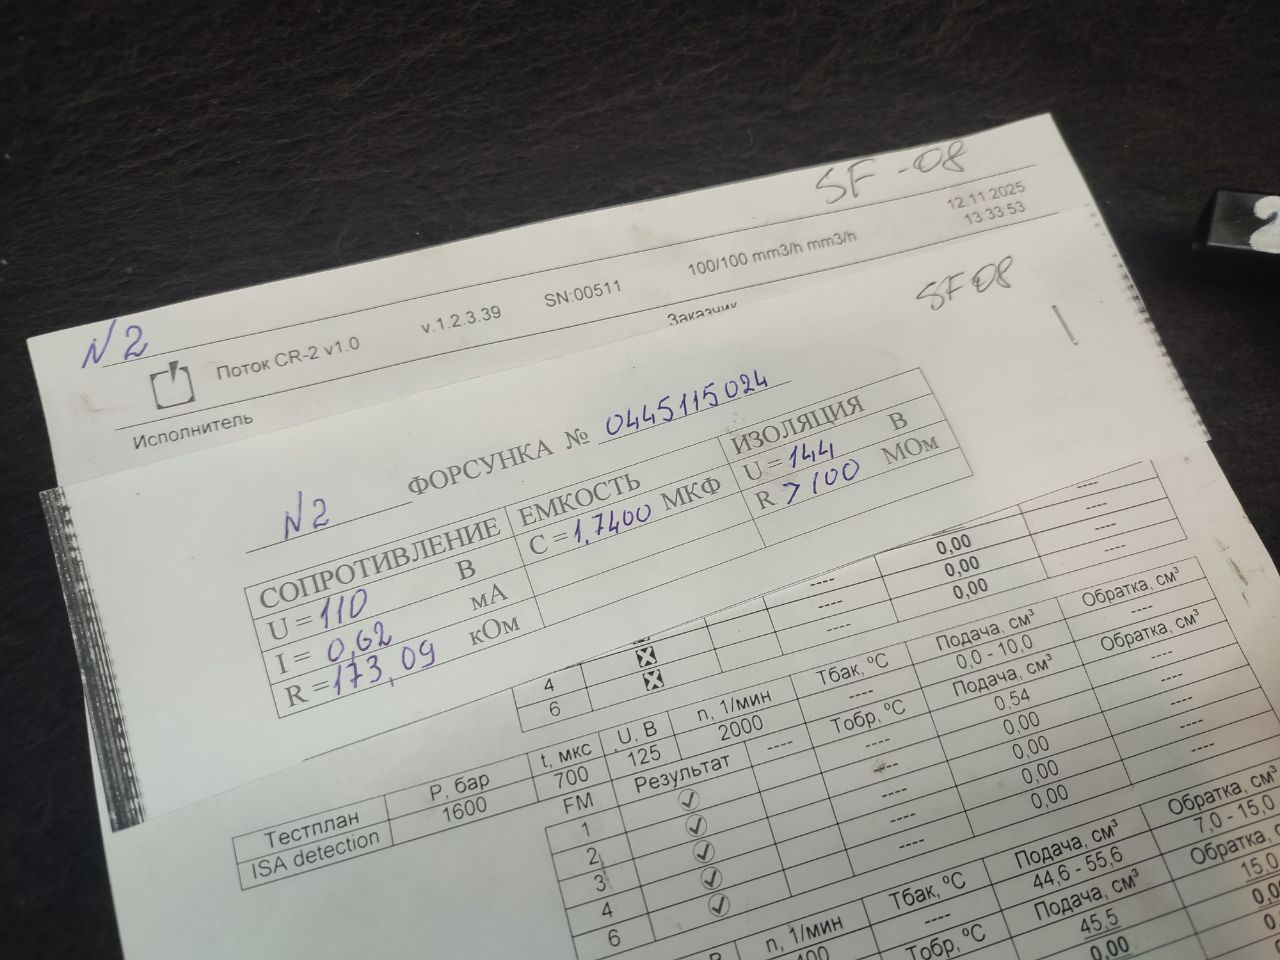 SF-08
12.11.2025
13:33:53
N2
Поток CR-2 v1.0 v.1.2.3.39 SN:00511 100/100 mm3/h mm3/h
Исполнитель Заказчик
SF 08
N2 ФОРСУНКА № 0445115024
СОПРОТИВЛЕНИЕ ЕМКОСТЬ ИЗОЛЯЦИЯ
U = 110 В C = 1,7400 МКФ U = 144 В
I = 0,62 мА R >100 МОм
R = 173,09 кОм
---- 0,00 ----
---- 0,00 ----
4 ---- 0,00 ----
6
Тестплан P, бар t, мкс U, В n, 1/мин Tбак, ºC Подача, см³ Обратка, см³
ISA detection 1600 700 125 2000 ---- 0,0 - 10,0 ----
FM Результат ---- Тобр, ºC Подача, см³ Обратка, см³
1 ---- 0,54 ----
2 ---- 0,00 ----
3 ---- 0,00 ----
4 ---- 0,00 ----
6 ---- 0,00 ----
В n, 1/мин Tбак, ºC Подача, см³ Обратка, см³
---- 44,6 - 55,6 7,0 - 15,0
Тобр, ºC Подача, см³ Обратка, с
45,5 15,0
0,00 0,0
2